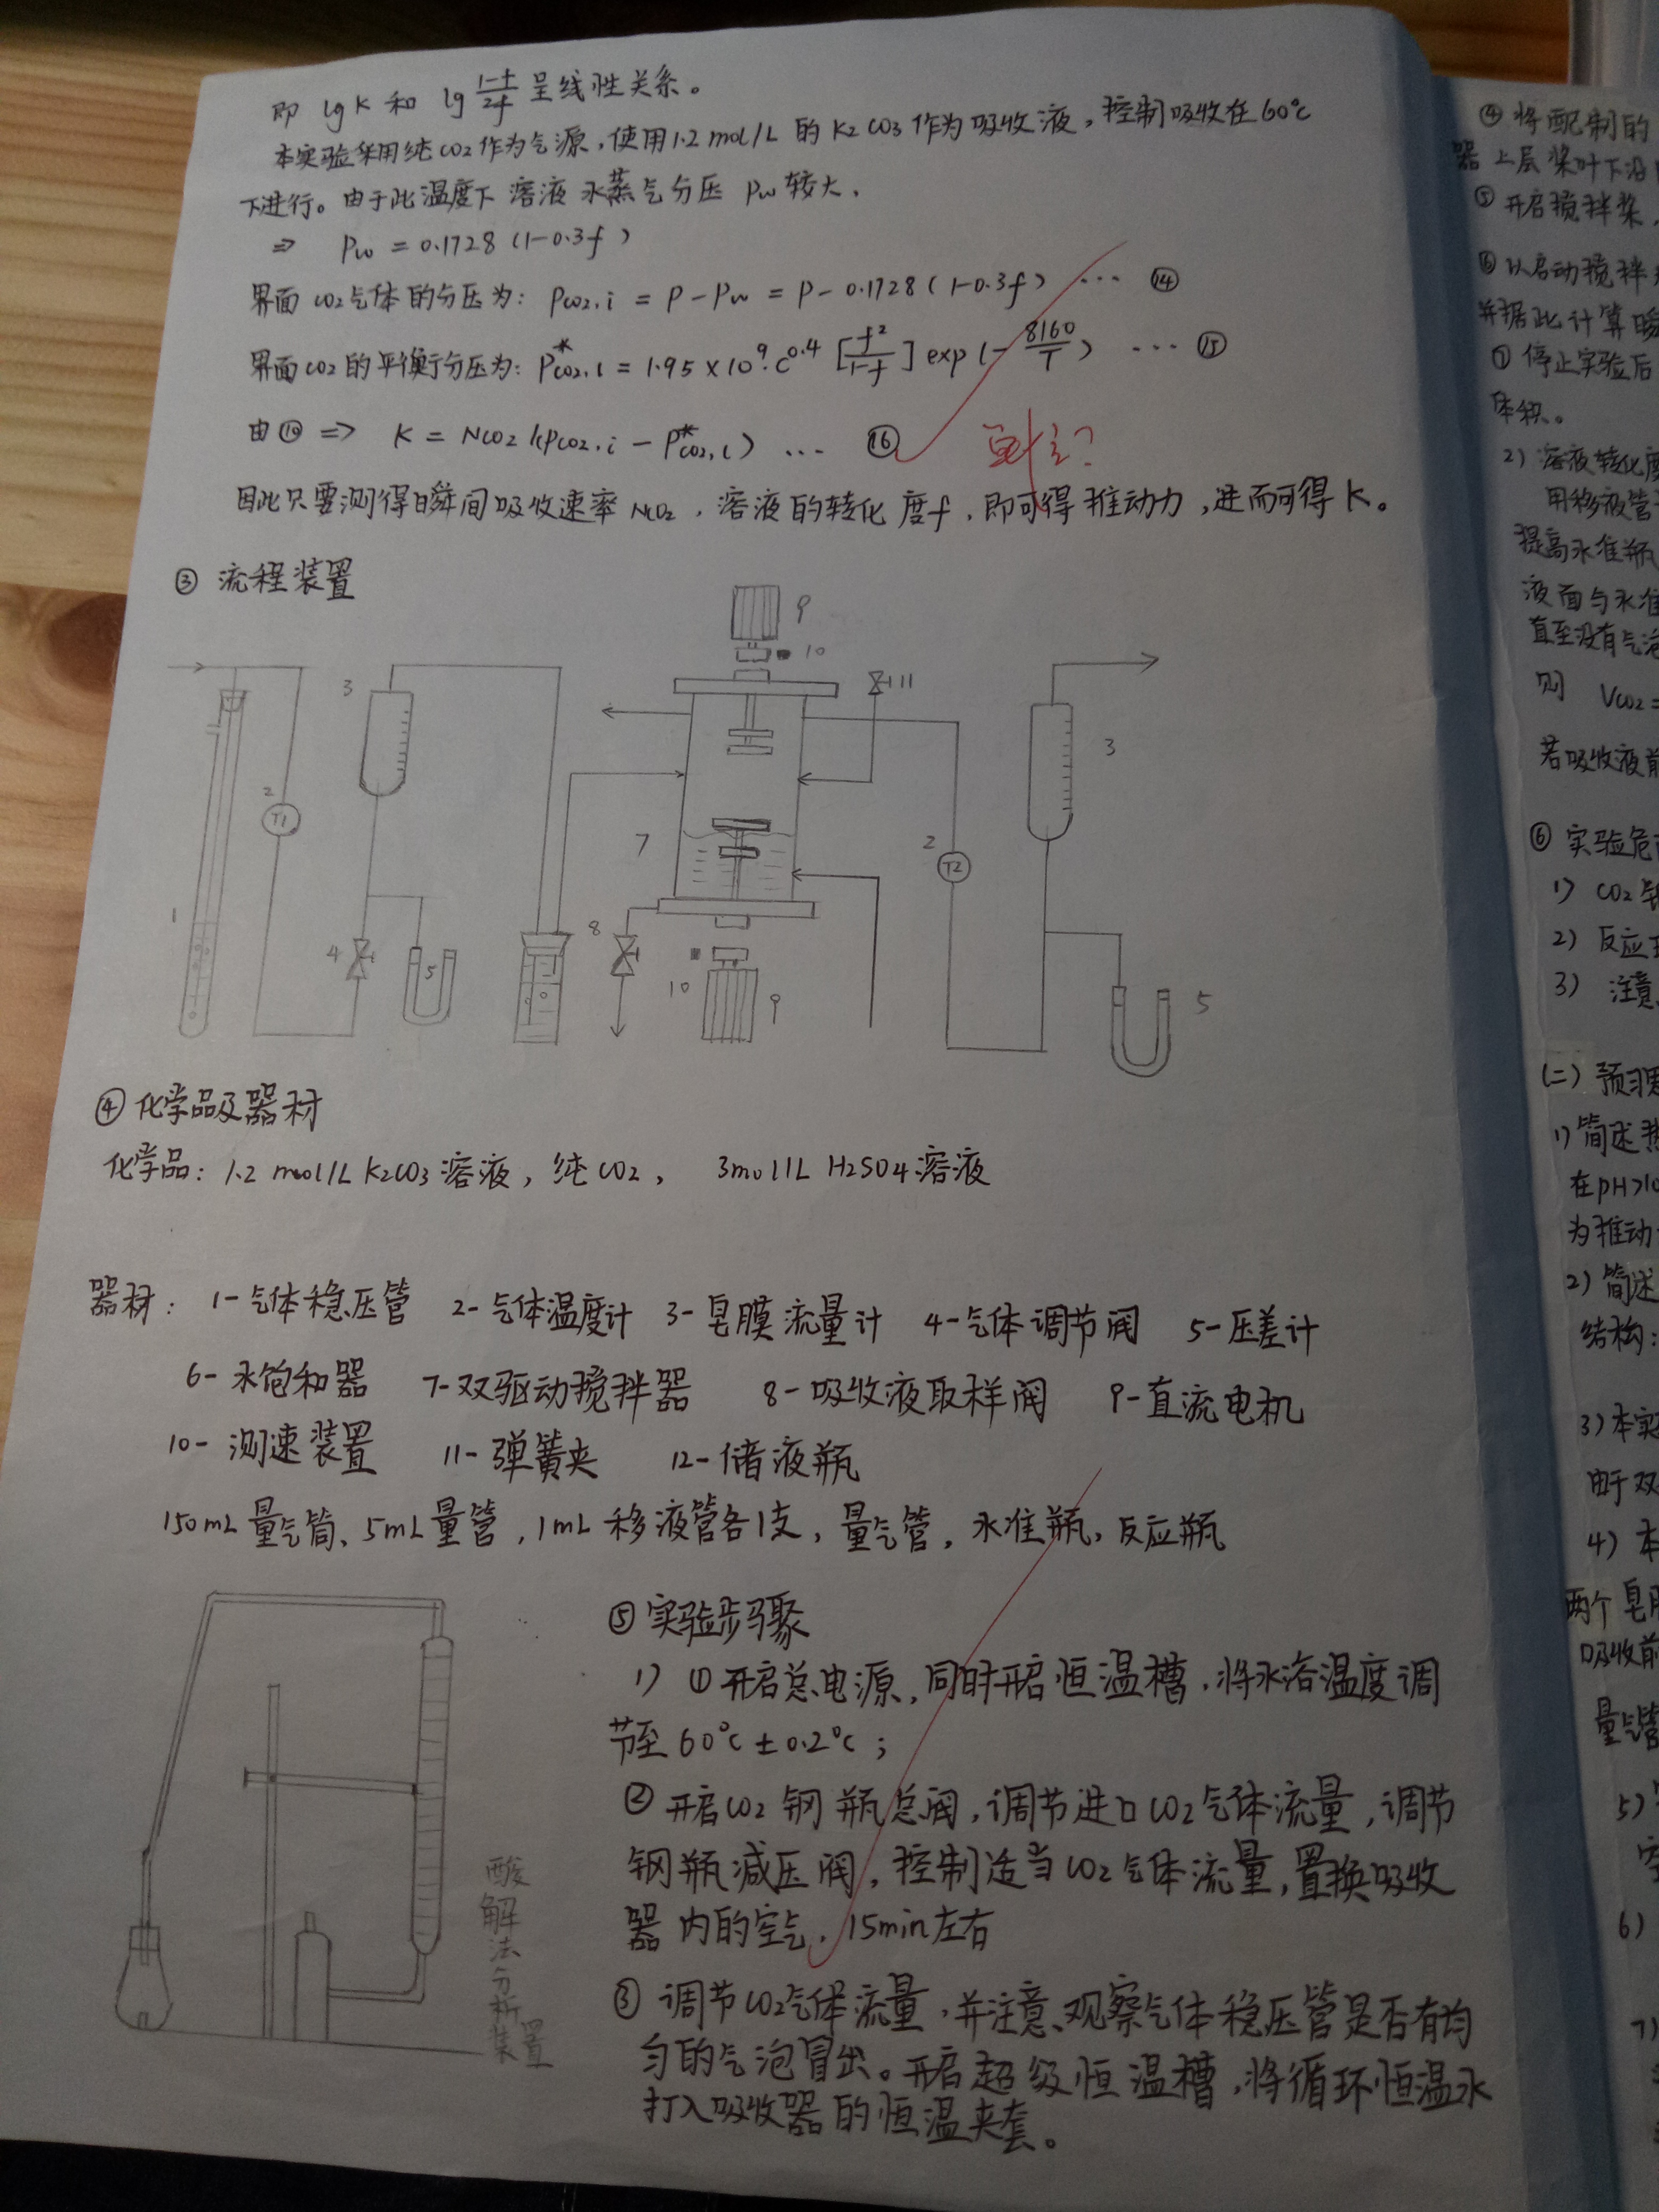 即 lgK 和 lg (1-f)/2f 呈线性关系。
本实验采用纯CO2作为气源,使用1.2 mol/L 的 K2CO3 作为吸收液,控制吸收在60℃
下进行。由于此温度下 溶液 水蒸气分压 Pw 较大,
⇒ Pw = 0.1728 (1-0.3f)
界面 CO2气体的分压为: PCO2,i = P-Pw = P-0.1728(1-0.3f) … ⑭
界面CO2的平衡分压为: P*CO2,l = 1.95×10^9·C^0.4 [f²/(1-f)] exp(-8160/T) … ⑮
由⑩ ⇒ K = NCO2/(PCO2,i - P*CO2,l) … ⑯
因此只要测得瞬间吸收速率NCO2,溶液的转化度f,即可得推动力,进而可得K。
③ 流程装置
9
10
3
11
3
2
T1
7
2
T2
1
4
5
8
10
9
5
④ 化学品及器材
化学品: 1.2 mol/L K2CO3溶液, 纯CO2, 3mol/L H2SO4溶液
器材: 1-气体稳压管 2-气体温度计 3-皂膜流量计 4-气体调节阀 5-压差计
6-水饱和器 7-双驱动搅拌器 8-吸收液取样阀 9-直流电机
10-测速装置 11-弹簧夹 12-储液瓶
150mL量气筒、5mL量管,1mL移液管各1支,量气管,水准瓶,反应瓶
酸解法分析装置
⑤ 实验步骤
1) ①开启总电源,同时开启恒温槽,将水浴温度调
节至60℃±0.2℃;
② 开启CO2 钢瓶总阀,调节进口CO2气体流量,调节
钢瓶减压阀,控制适当CO2气体流量,置换吸收
器内的空气,15min左右
③ 调节CO2气体流量,并注意观察气体稳压管是否有均
匀的气泡冒出。开启超级恒温槽,将循环恒温水
打入吸收器的恒温夹套。
④ 将配制的
器上层桨叶下沿
⑤ 开启搅拌桨,
⑥ 以启动搅拌
并据此计算瞬
⑦ 停止实验后
体积。
2) 溶液转化度
用移液管
提高水准瓶
液面与水准
直至没有气泡
则 VCO2=
若吸收液前
⑥ 实验危
1) CO2钢
2) 反应
3) 注意
(二) 预习
1) 简述
在pH>10
为推动
2) 简述
结构:
3) 本实
由于双
4) 本
两个皂
吸收前
量气管
5)
6)
7)